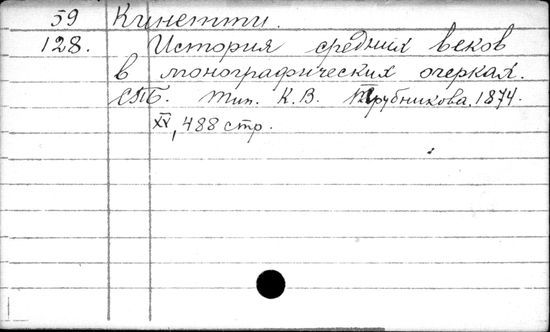 59 Кинетти.
128. История средних веков
в монографических очерках.
СПБ. Тип. К. В. Трубникова, 1874.
XV, 488 стр.